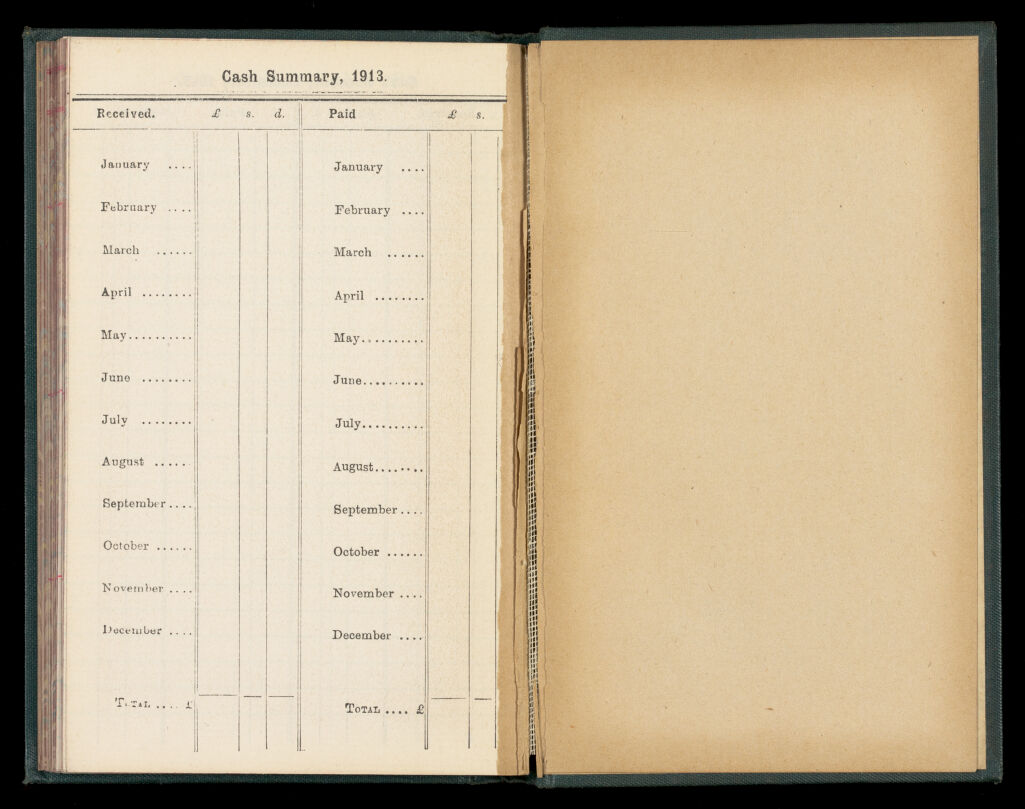 Cash Summary, 1913.
Received. £ s. d. Paid £ s.
January .... January ....
February .... February ....
March ...... March ......
April ........ April ........
May.......... May..........
June ........ June..........
July ........ July..........
August ..... August........
September.... September....
October ...... October ......
November .... November ....
December .... December ....
TOTAL .... £ TOTAL .... £